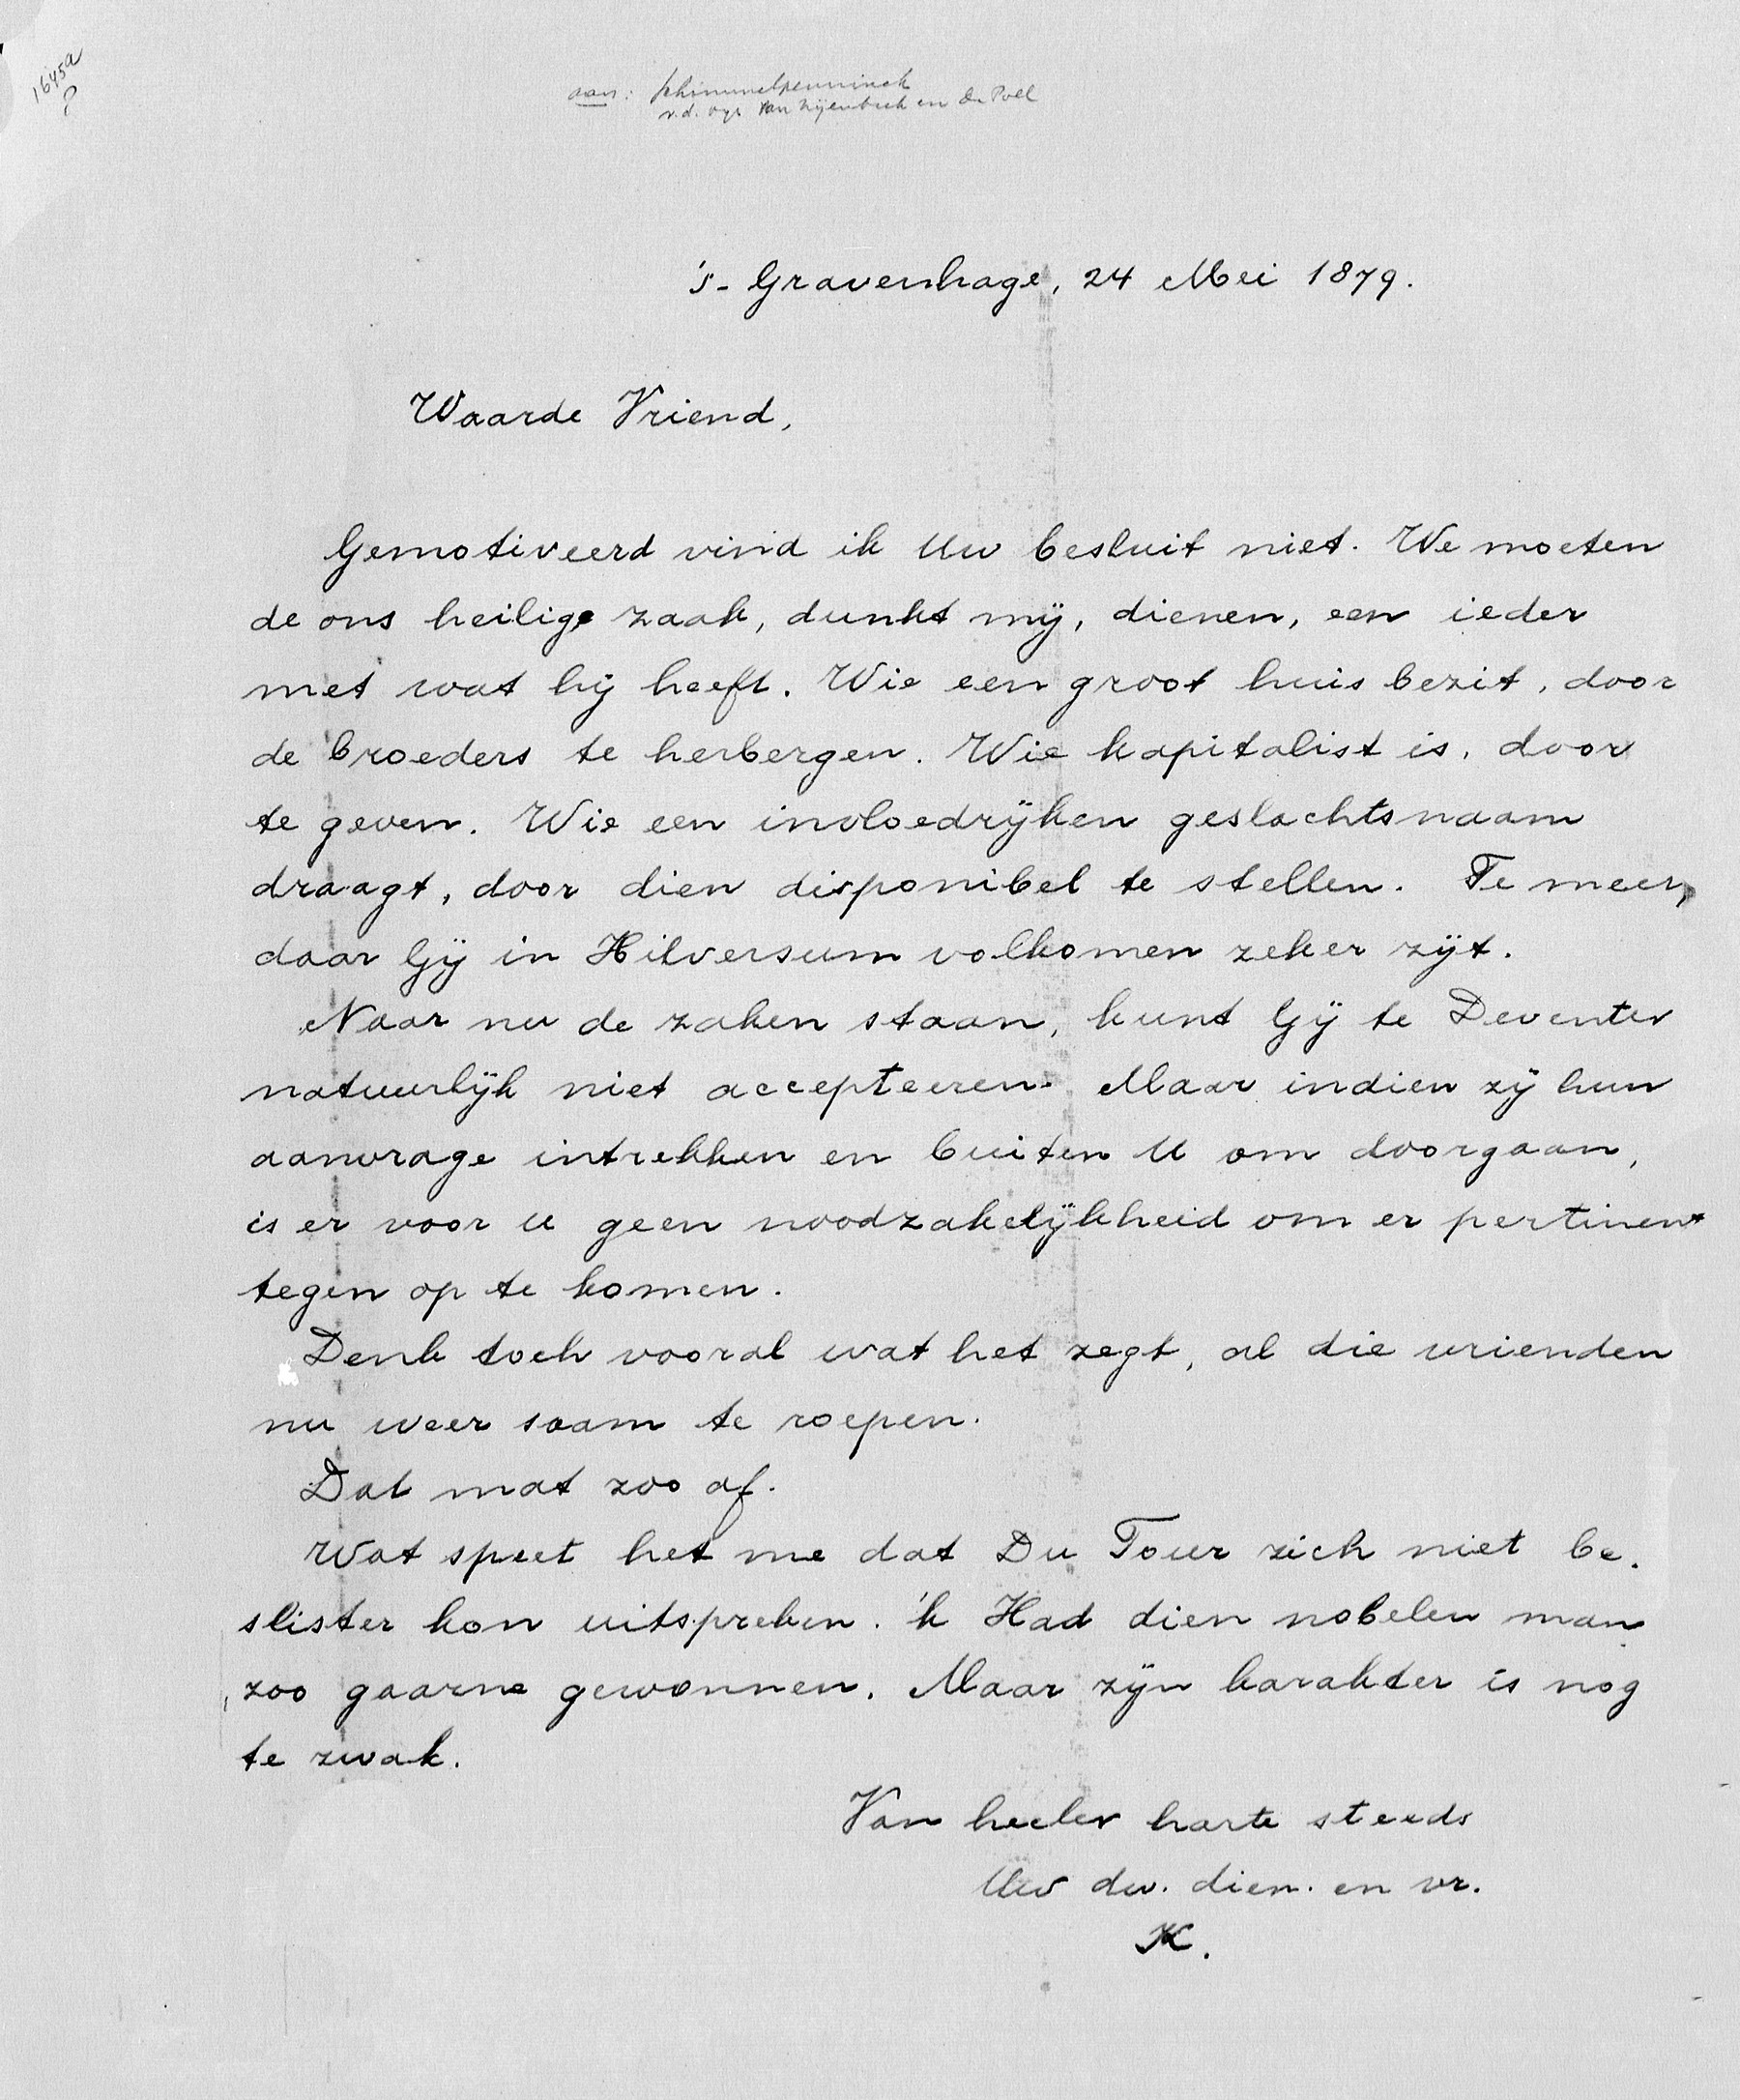 1645a
?
aan: Schimmelpenninck
v.d. Oye van Nijenbeek en de Poll
's-Gravenhage, 24 Mei 1879.
Waarde Vriend,
Gemotiveerd vind ik Uw besluit niet. We moeten
de ons heilige zaak, dunkt mij, dienen, een ieder
met wat hij heeft. Wie een groot huis bezit, door
de broeders te herbergen. Wie kapitalist is, door
te geven. Wie een invloedrijken geslachtsnaam
draagt, door dien disponibel te stellen. Te meer,
daar Gij in Hilversum volkomen zeker zijt.
Naar nu de zaken staan, kunt Gij te Deventer
natuurlijk niet accepteeren. Maar indien zij hun
aanvrage intrekken en buiten U om doorgaan,
is er voor u geen noodzakelijkheid om er pertinent
tegen op te komen.
Denk toch vooral wat het zegt, al die vrienden
nu weer saam te roepen.
Dat mat zoo af.
Wat speet het me dat Du Tour zich niet be-
slister kon uitspreken. 'k Had dien nobelen man
zoo gaarne gewonnen. Maar zijn karakter is nog
te zwak.
Van heeler harte steeds
Uw dw. dien. en vr.
K.